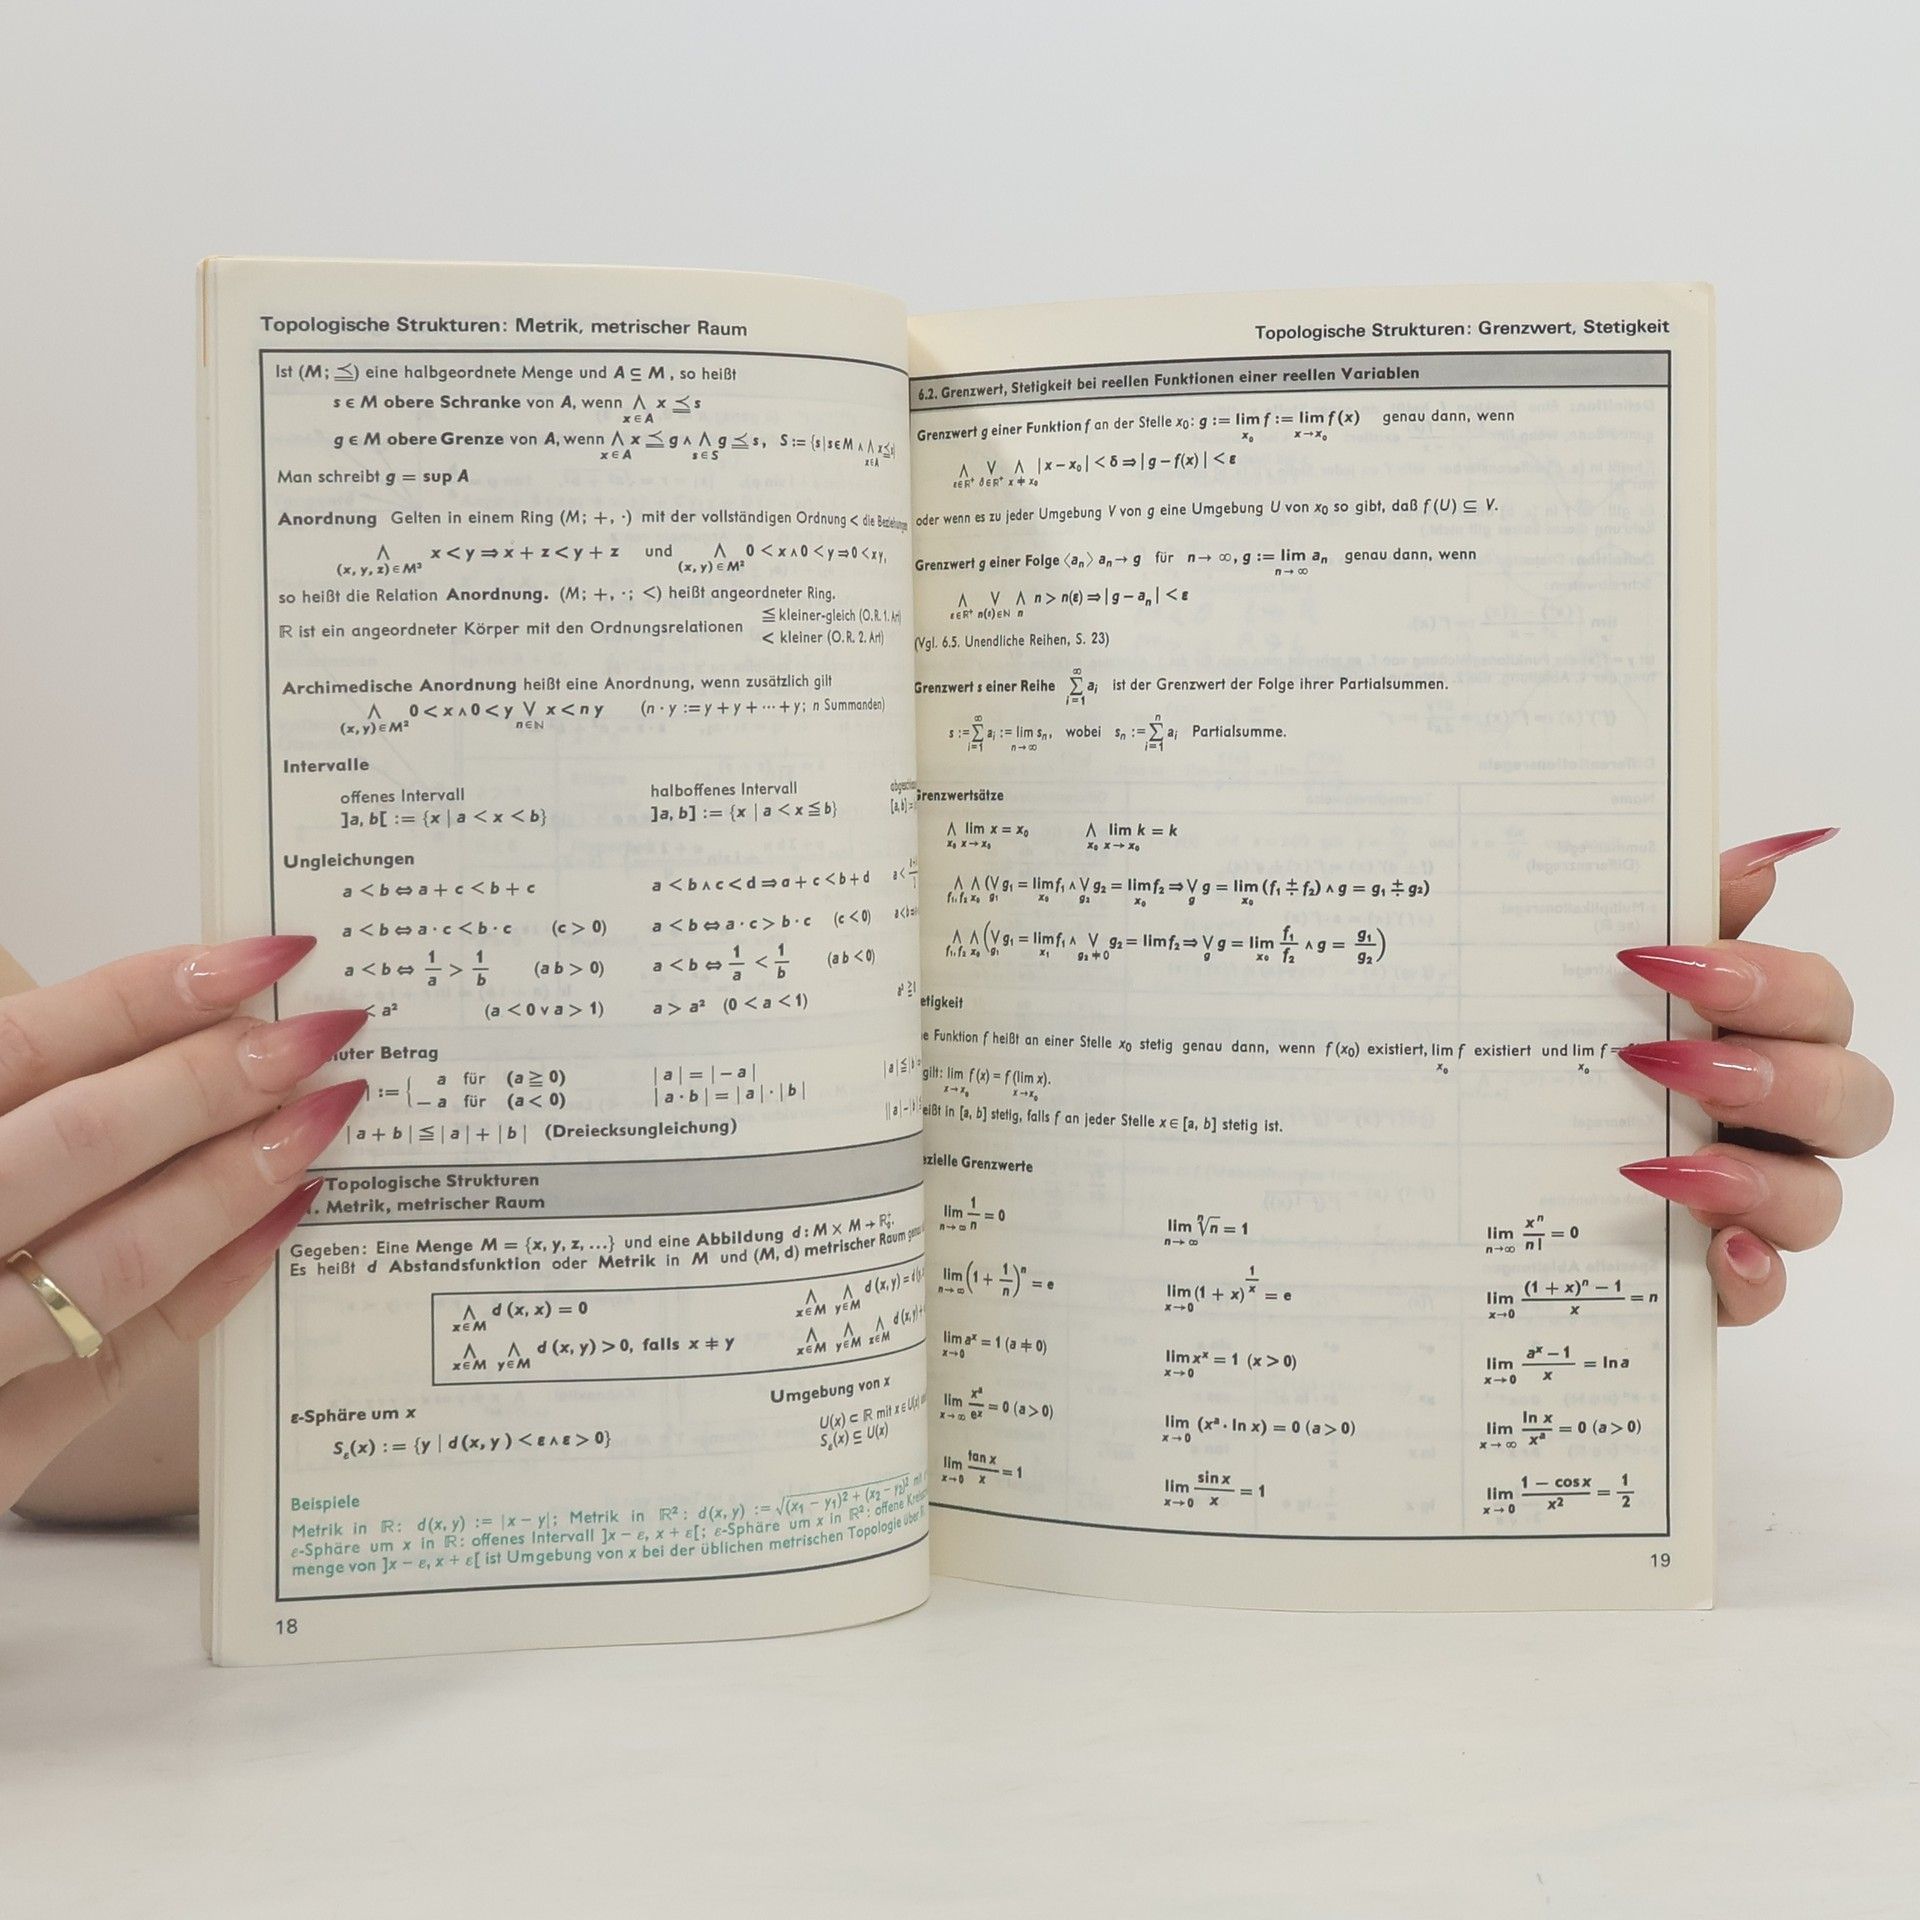 Topologische Strukturen: Metrik, metrischer Raum
Ist (M; ≦) eine halbgeordnete Menge und A ⊆ M, so heißt
s ∈ M obere Schranke von A, wenn ⋀ x ≦ s
x∈A
g ∈ M obere Grenze von A, wenn ⋀ x ≦ g ∧ ⋀ g ≦ s, S := {s | s∈M ∧ ⋀ x≦s}
x∈A s∈S x∈A
Man schreibt g = sup A
Anordnung Gelten in einem Ring (M; +, ·) mit der vollständigen Ordnung < die Beziehungen
⋀ x < y ⇒ x + z < y + z und ⋀ 0 < x ∧ 0 < y ⇒ 0 < xy,
(x, y, z) ∈ M³ (x, y) ∈ M²
so heißt die Relation Anordnung. (M; +, ·; <) heißt angeordneter Ring.
ℝ ist ein angeordneter Körper mit den Ordnungsrelationen ≦ kleiner-gleich (O.R. 1. Art)
< kleiner (O.R. 2. Art)
Archimedische Anordnung heißt eine Anordnung, wenn zusätzlich gilt
⋀ 0 < x ∧ 0 < y ⋁ x < n y (n · y := y + y + ··· + y; n Summanden)
(x, y) ∈ M² n∈ℕ
Intervalle
offenes Intervall halboffenes Intervall
]a, b[ := {x | a < x < b} ]a, b] := {x | a < x ≦ b} [a, b] =
Ungleichungen
a < b ⇔ a + c < b + c a < b ∧ c < d ⇒ a + c < b + d a <
a < b ⇔ a · c < b · c (c > 0) a < b ⇔ a · c > b · c (c < 0)
a < b ⇔ 1/a > 1/b (a b > 0) a < b ⇔ 1/a < 1/b (a b < 0)
< a² (a < 0 ∨ a > 1) a > a² (0 < a < 1)
uter Betrag
:= { a für (a ≧ 0) | a | = | − a |
− a für (a < 0) | a · b | = | a | · | b |
| a + b | ≦ | a | + | b | (Dreiecksungleichung)
Topologische Strukturen
. Metrik, metrischer Raum
Gegeben: Eine Menge M = {x, y, z, ...} und eine Abbildung d : M × M → ℝ₀⁺.
Es heißt d Abstandsfunktion oder Metrik in M und (M, d) metrischer Raum
⋀ d (x, x) = 0 ⋀ ⋀ d (x, y) =
x∈M x∈M y∈M
⋀ ⋀ d (x, y) > 0, falls x ≠ y ⋀ ⋀ ⋀ d (x, y) +
x∈M y∈M x∈M y∈M z∈M
ε-Sphäre um x Umgebung von x
Sε(x) := {y | d (x, y) < ε ∧ ε > 0} U(x) ⊂ ℝ mit x ∈ U(x)
Sε(x) ⊆ U(x)
Beispiele
Metrik in ℝ: d(x, y) := |x − y|; Metrik in ℝ²: d(x, y) := √((x₁ − y₁)² + (x₂ − y₂)²) mit
ε-Sphäre um x in ℝ: offenes Intervall ]x − ε, x + ε[; ε-Sphäre um x in ℝ²: offene
menge von ]x − ε, x + ε[ ist Umgebung von x bei der üblichen metrischen Topologie über
18
Topologische Strukturen: Grenzwert, Stetigkeit
6.2. Grenzwert, Stetigkeit bei reellen Funktionen einer reellen Variablen
Grenzwert g einer Funktion f an der Stelle x₀: g := lim f := lim f (x) genau dann, wenn
x₀ x→x₀
⋀ ⋁ ⋀ | x − x₀ | < δ ⇒ | g − f(x) | < ε
ε∈ℝ⁺ δ∈ℝ⁺ x ≠ x₀
oder wenn es zu jeder Umgebung V von g eine Umgebung U von x₀ so gibt, daß f (U) ⊆ V.
Grenzwert g einer Folge ⟨aₙ⟩ aₙ → g für n → ∞, g := lim aₙ genau dann, wenn
n→∞
⋀ ⋁ ⋀ n > n(ε) ⇒ | g − aₙ | < ε
ε∈ℝ⁺ n(ε)∈ℕ n
(Vgl. 6.5. Unendliche Reihen, S. 23)
Grenzwert s einer Reihe ∞∑i=1 aᵢ ist der Grenzwert der Folge ihrer Partialsummen.
s := ∞∑i=1 aᵢ := lim sₙ, wobei sₙ := n∑i=1 aᵢ Partialsumme.
n→∞
Grenzwertsätze
⋀ lim x = x₀ ⋀ lim k = k
x₀ x→x₀ x₀ x→x₀
⋀ ⋀ (⋁ g₁ = lim f₁ ∧ ⋁ g₂ = lim f₂ ⇒ ⋁ g = lim (f₁ ∔ f₂) ∧ g = g₁ ∔ g₂)
f₁, f₂ x₀ g₁ x₀ g₂ x₀ g x₀
⋀ ⋀ (⋁ g₁ = lim f₁ ∧ ⋁ g₂ = lim f₂ ⇒ ⋁ g = lim f₁/f₂ ∧ g = g₁/g₂)
f₁, f₂ x₀ g₁ x₁ g₂ ≠ 0 g x₀
etigkeit
e Funktion f heißt an einer Stelle x₀ stetig genau dann, wenn f (x₀) existiert, lim f existiert und lim f =
x₀ x₀
gilt: lim f (x) = f (lim x).
x→x₀ x→x₀
eißt in [a, b] stetig, falls f an jeder Stelle x ∈ [a, b] stetig ist.
ezielle Grenzwerte
lim n→∞ 1/n = 0 lim n→∞ ⁿ√n = 1 lim n→∞ xⁿ/n! = 0
lim n→∞ (1 + 1/n)ⁿ = e lim x→0 (1 + x)^(1/x) = e lim x→0 ((1 + x)ⁿ − 1)/x = n
lim x→0 aˣ = 1 (a ≠ 0) lim x→0 xˣ = 1 (x > 0) lim x→0 (aˣ − 1)/x = ln a
lim x→∞ xᵃ/eˣ = 0 (a > 0) lim x→0 (xᵃ · ln x) = 0 (a > 0) lim x→∞ ln x/xᵃ = 0 (a > 0)
lim x→0 tan x/x = 1 lim x→0 sin x/x = 1 lim x→0 (1 − cos x)/x² = 1/2
19